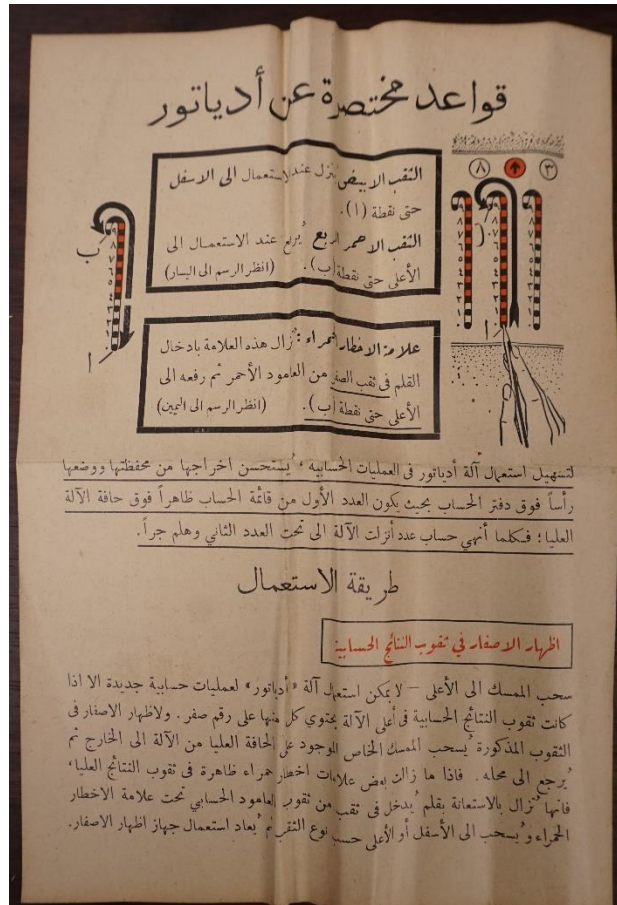 قواعد مختصرة عن أدياتور
٨
٣
الثقب الابيض ينزل عند الاستعمال الى الاسفل
حتى نقطة (١).
الثقب الاحمر المربع يُرفع عند الاستعمال الى
الأعلى حتى نقطة (ب). (انظر الرسم الى اليسار)
ب
ا
ب
ا
علامة الاخطار الحمراء : تزال هذه العلامة بادخال
القلم في ثقب الصفر من العامود الأحمر ثم رفعه الى
الأعلى حتى نقطة (ب). (انظر الرسم الى اليمين)
لتسهيل استعمال آلة أدياتور في العمليات الحسابيه ، يُستحسن اخراجها من محفظتها ووضعها
رأساً فوق دفتر الحساب بحيث يكون العدد الأول من قائمة الحساب ظاهراً فوق حافة الآلة
العليا ؛ فكلما أنهي حساب عدد أنزلت الآلة الى تحت العدد الثاني وهلم جراً.
طريقة الاستعمال
اظهار الاصفار في ثقوب النتائج الحسابية
سحب الممسك الى الأعلى – لا يمكن استعمال آلة «أدياتور» لعمليات حسابية جديدة الا اذا
كانت ثقوب النتائج الحسابية في أعلى الآلة يحتوي كل منها على رقم صفر. ولاظهار الاصفار في
الثقوب المذكورة يُسحب الممسك الخاص الموجود على الحافة العليا من الآلة الى الخارج ثم
يُرجع الى محله. فاذا ما زالت بعض علامات اخطار حمراء ظاهرة في ثقوب النتائج العليا،
فانها تُزال بالاستعانة بقلم يُدخل في ثقب من ثقوب العامود الحسابي تحت علامة الاخطار
الحمراء ويُسحب الى الأسفل أو الأعلى حسب نوع الثقب ثم يُعاد استعمال جهاز اظهار الاصفار.